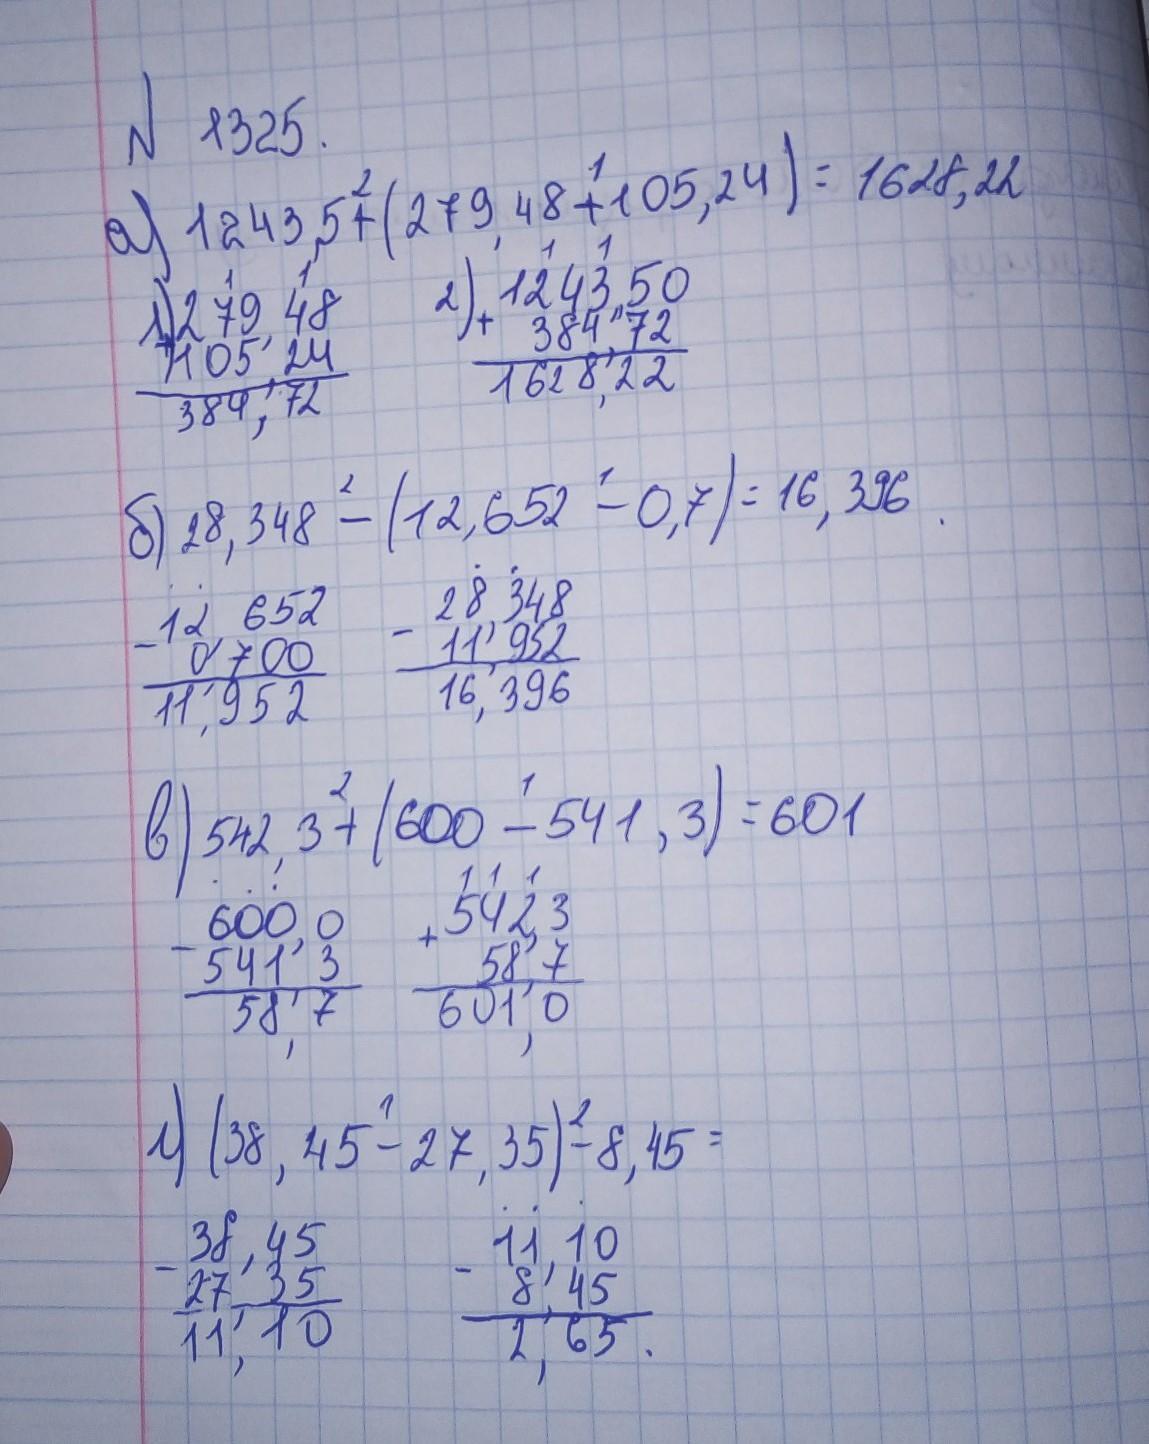 N 1325.
а) 1243,5 + (279,48 + 105,24) = 1628,22
2 1
1) 279,48 2) 1243,50
+ 105,24 + 384,72
384,72 1628,22
б) 28,348 - (12,652 - 0,7) = 16,396.
2 1
- 12,652 - 28,348
0,700 11,952
11,952 16,396
в) 542,3 + (600 - 541,3) = 601
2 1
- 600,0 + 542,3
541,3 58,7
58,7 601,0
г) (38,45 - 27,35) - 8,45 =
1 2
- 38,45 - 11,10
27,35 8,45
11,10 2,65.